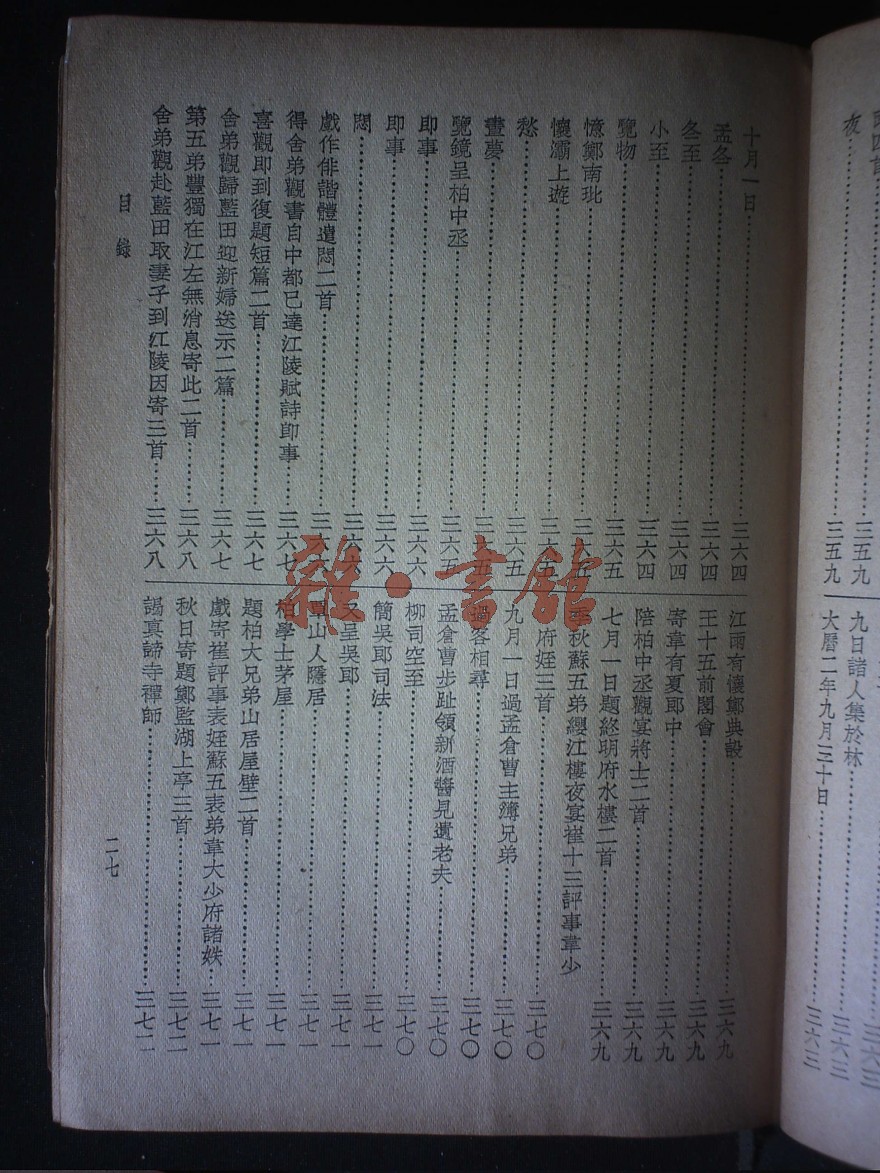 夜……三五九
三五九
九日諸人集於林……三六三
大曆二年九月三十日……三六三
十月一日……三六四
孟冬……三六四
冬至……三六四
小至……三六四
覽物……三六五
憶鄭南玭……三六五
懷灞上遊……三六五
愁……三六五
晝夢……三六五
覽鏡呈柏中丞……三六五
即事……三六六
即事……三六六
悶……三六六
戲作俳諧體遣悶二首……三六六
得舍弟觀書自中都已達江陵賦詩即事……三六七
喜觀即到復題短篇二首……三六七
舍弟觀歸藍田迎新婦送示二篇……三六七
第五弟豐獨在江左無消息寄此二首……三六八
舍弟觀赴藍田取妻子到江陵因寄三首……三六八
江雨有懷鄭典設……三六九
王十五前閣會……三六九
寄韋有夏郎中……三六九
陪柏中丞觀宴將士二首……三六九
七月一日題終明府水樓二首……三六九
季秋蘇五弟纓江樓夜宴崔十三評事韋少
府姪三首……三七〇
九月一日過孟倉曹主簿兄弟……三七〇
過客相尋……三七〇
孟倉曹步趾領新酒醬見遺老夫……三七〇
柳司空至……三七〇
簡吳郎司法……三七一
又呈吳郎……三七一
覃山人隱居……三七一
柏學士茅屋……三七一
題柏大兄弟山居屋壁二首……三七一
戲寄崔評事表姪蘇五表弟韋大少府諸姪……三七一
秋日寄題鄭監湖上亭三首……三七二
謁真諦寺禪師……三七二
目錄
二七
雜·書館